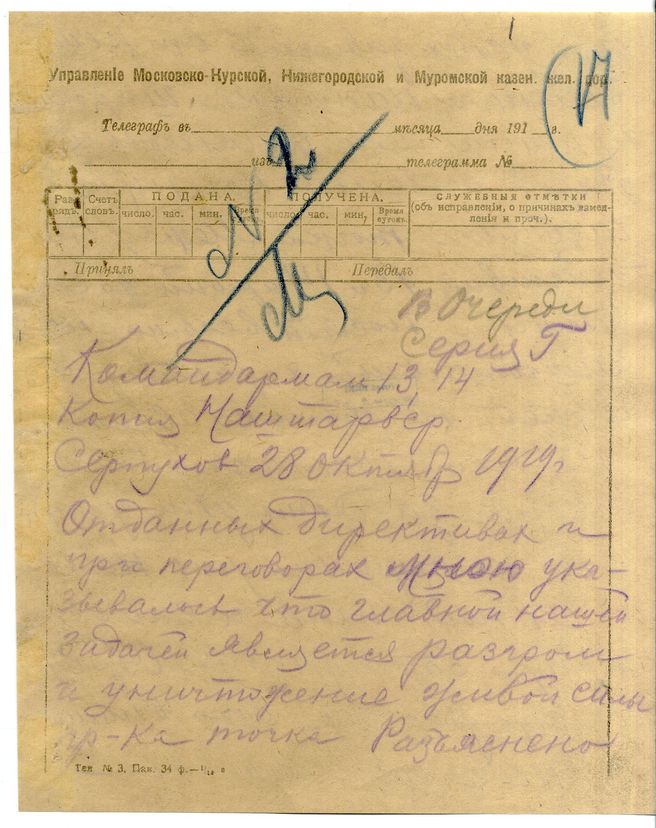 17
Управленіе Московско-Курской, Нижегородской и Муромской казен. жел. дор.
Телеграфъ въ мѣсяца дня 191 г.
изъ телеграмма №
Раз- рядъ. Счетъ словъ. ПОДАНА. ПОЛУЧЕНА. СЛУЖЕБНЫЯ ОТМѢТКИ
(объ исправленіи, о причинахъ замед-
ленія и проч.).
число. час. мин. Время число. час. мин. Время сутокъ.
Принялъ Передалъ
В Очереди
Серия Г.
Командармам 13, 14
Копия Наштарвср.
Серпухов 28 октябр 1919г
Отданных директивах и
при переговорах мною ука-
зывалось что главной нашей
задачей является разгром
и уничтожение живой силы
пр-ка точка Разъяснено
Тел. № 3. Пак. 34 ф.